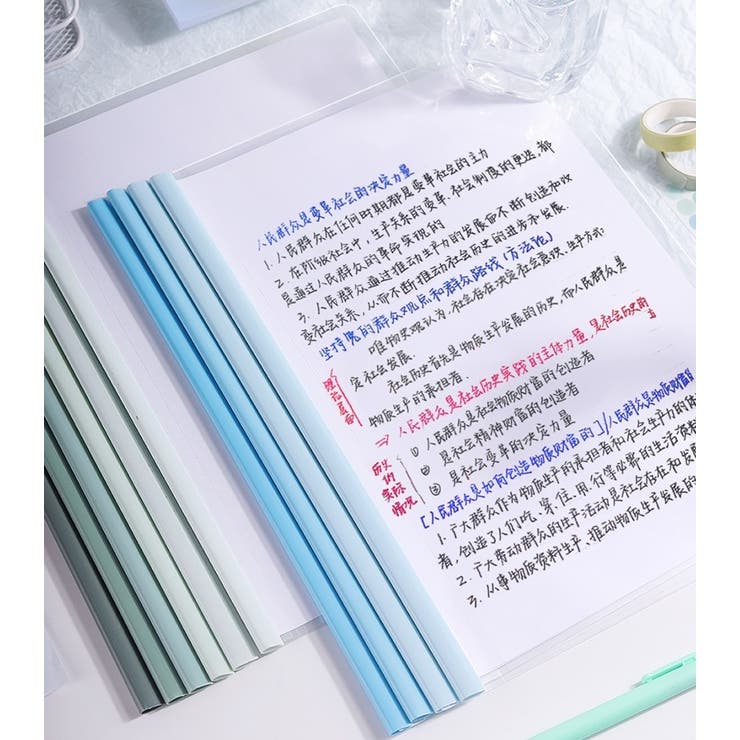 人民群众是变革社会的决定力量
1. 人民群众在任何时期都是变革社会的主力
2. 在阶级社会中，生产关系的变革、社会制度的更迭，都
是通过人民群众的革命实现的
3. 人民群众通过推动生产力的发展而不断创造和改
变社会关系，从而不断推动社会历史的进步和发展.
坚持党的群众观点和群众路线(方法论)
唯物史观认为，社会存在决定社会意识，生产方式
定社会发展.
社会历史首先是物质生产发展的历史，而人民群众是
物质生产的承担者.
⇒人民群众是社会历史实践的主体力量，是社会历史的
① 人民群众是社会物质财富的创造者
② 是社会精神财富的创造者
③ 是社会变革的决定力量
历史
的
实际
情况
[人民群众是如何创造物质财富的]/人民群众是物质财富的
1. 广大群众作为物质生产的承担者和社会生产力的体
者，创造了人们吃、穿、住、用、行等必需的生活资料
2. 广大劳动群众的生产活动是社会存在和发展
3. 从事物质资料生产、推动物质生产发展的